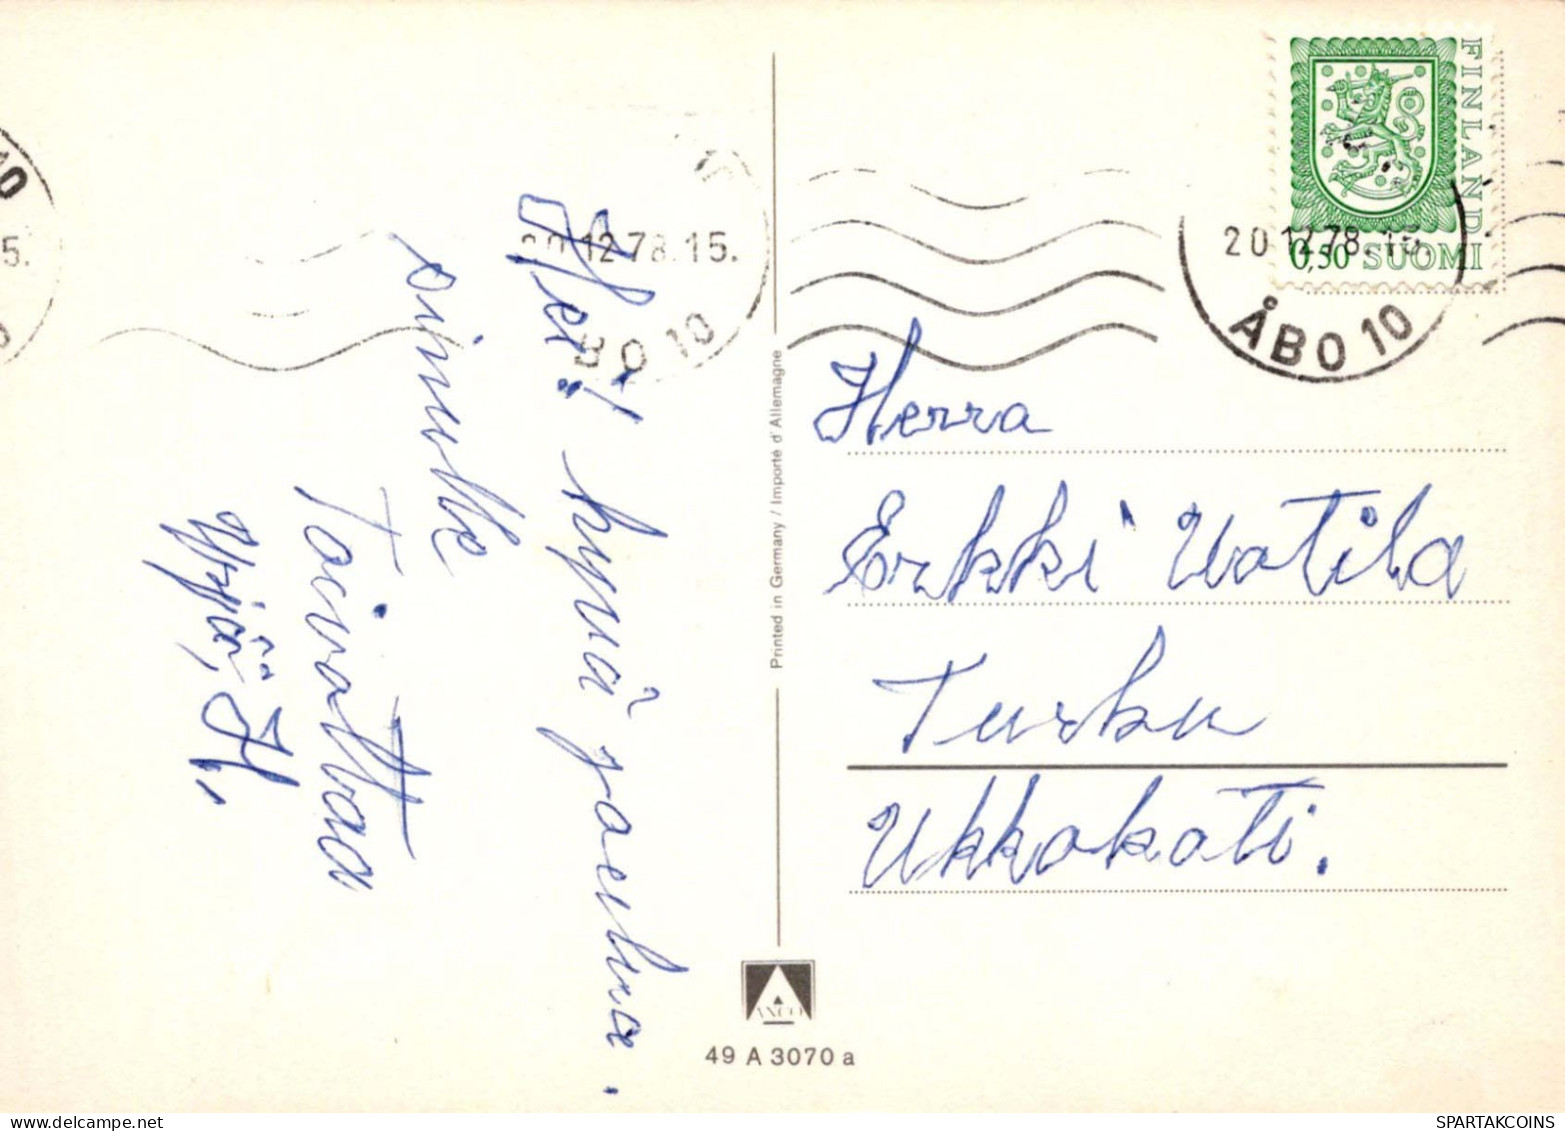 Hei! hyvä joulua.
sinulle
Toivottaa
Yrjö, H.
20.12.78.15.
ÅBO 10
FINLAND
0,50 SUOMI
20.12.78.15.
ÅBO 10
Herra
Erkki Uotila
Turku
Ukkokoti.
Printed in Germany / Importé d'Allemagne
ANCO
49 A 3070 a
10
5.
SPARTAKCOINS.COM